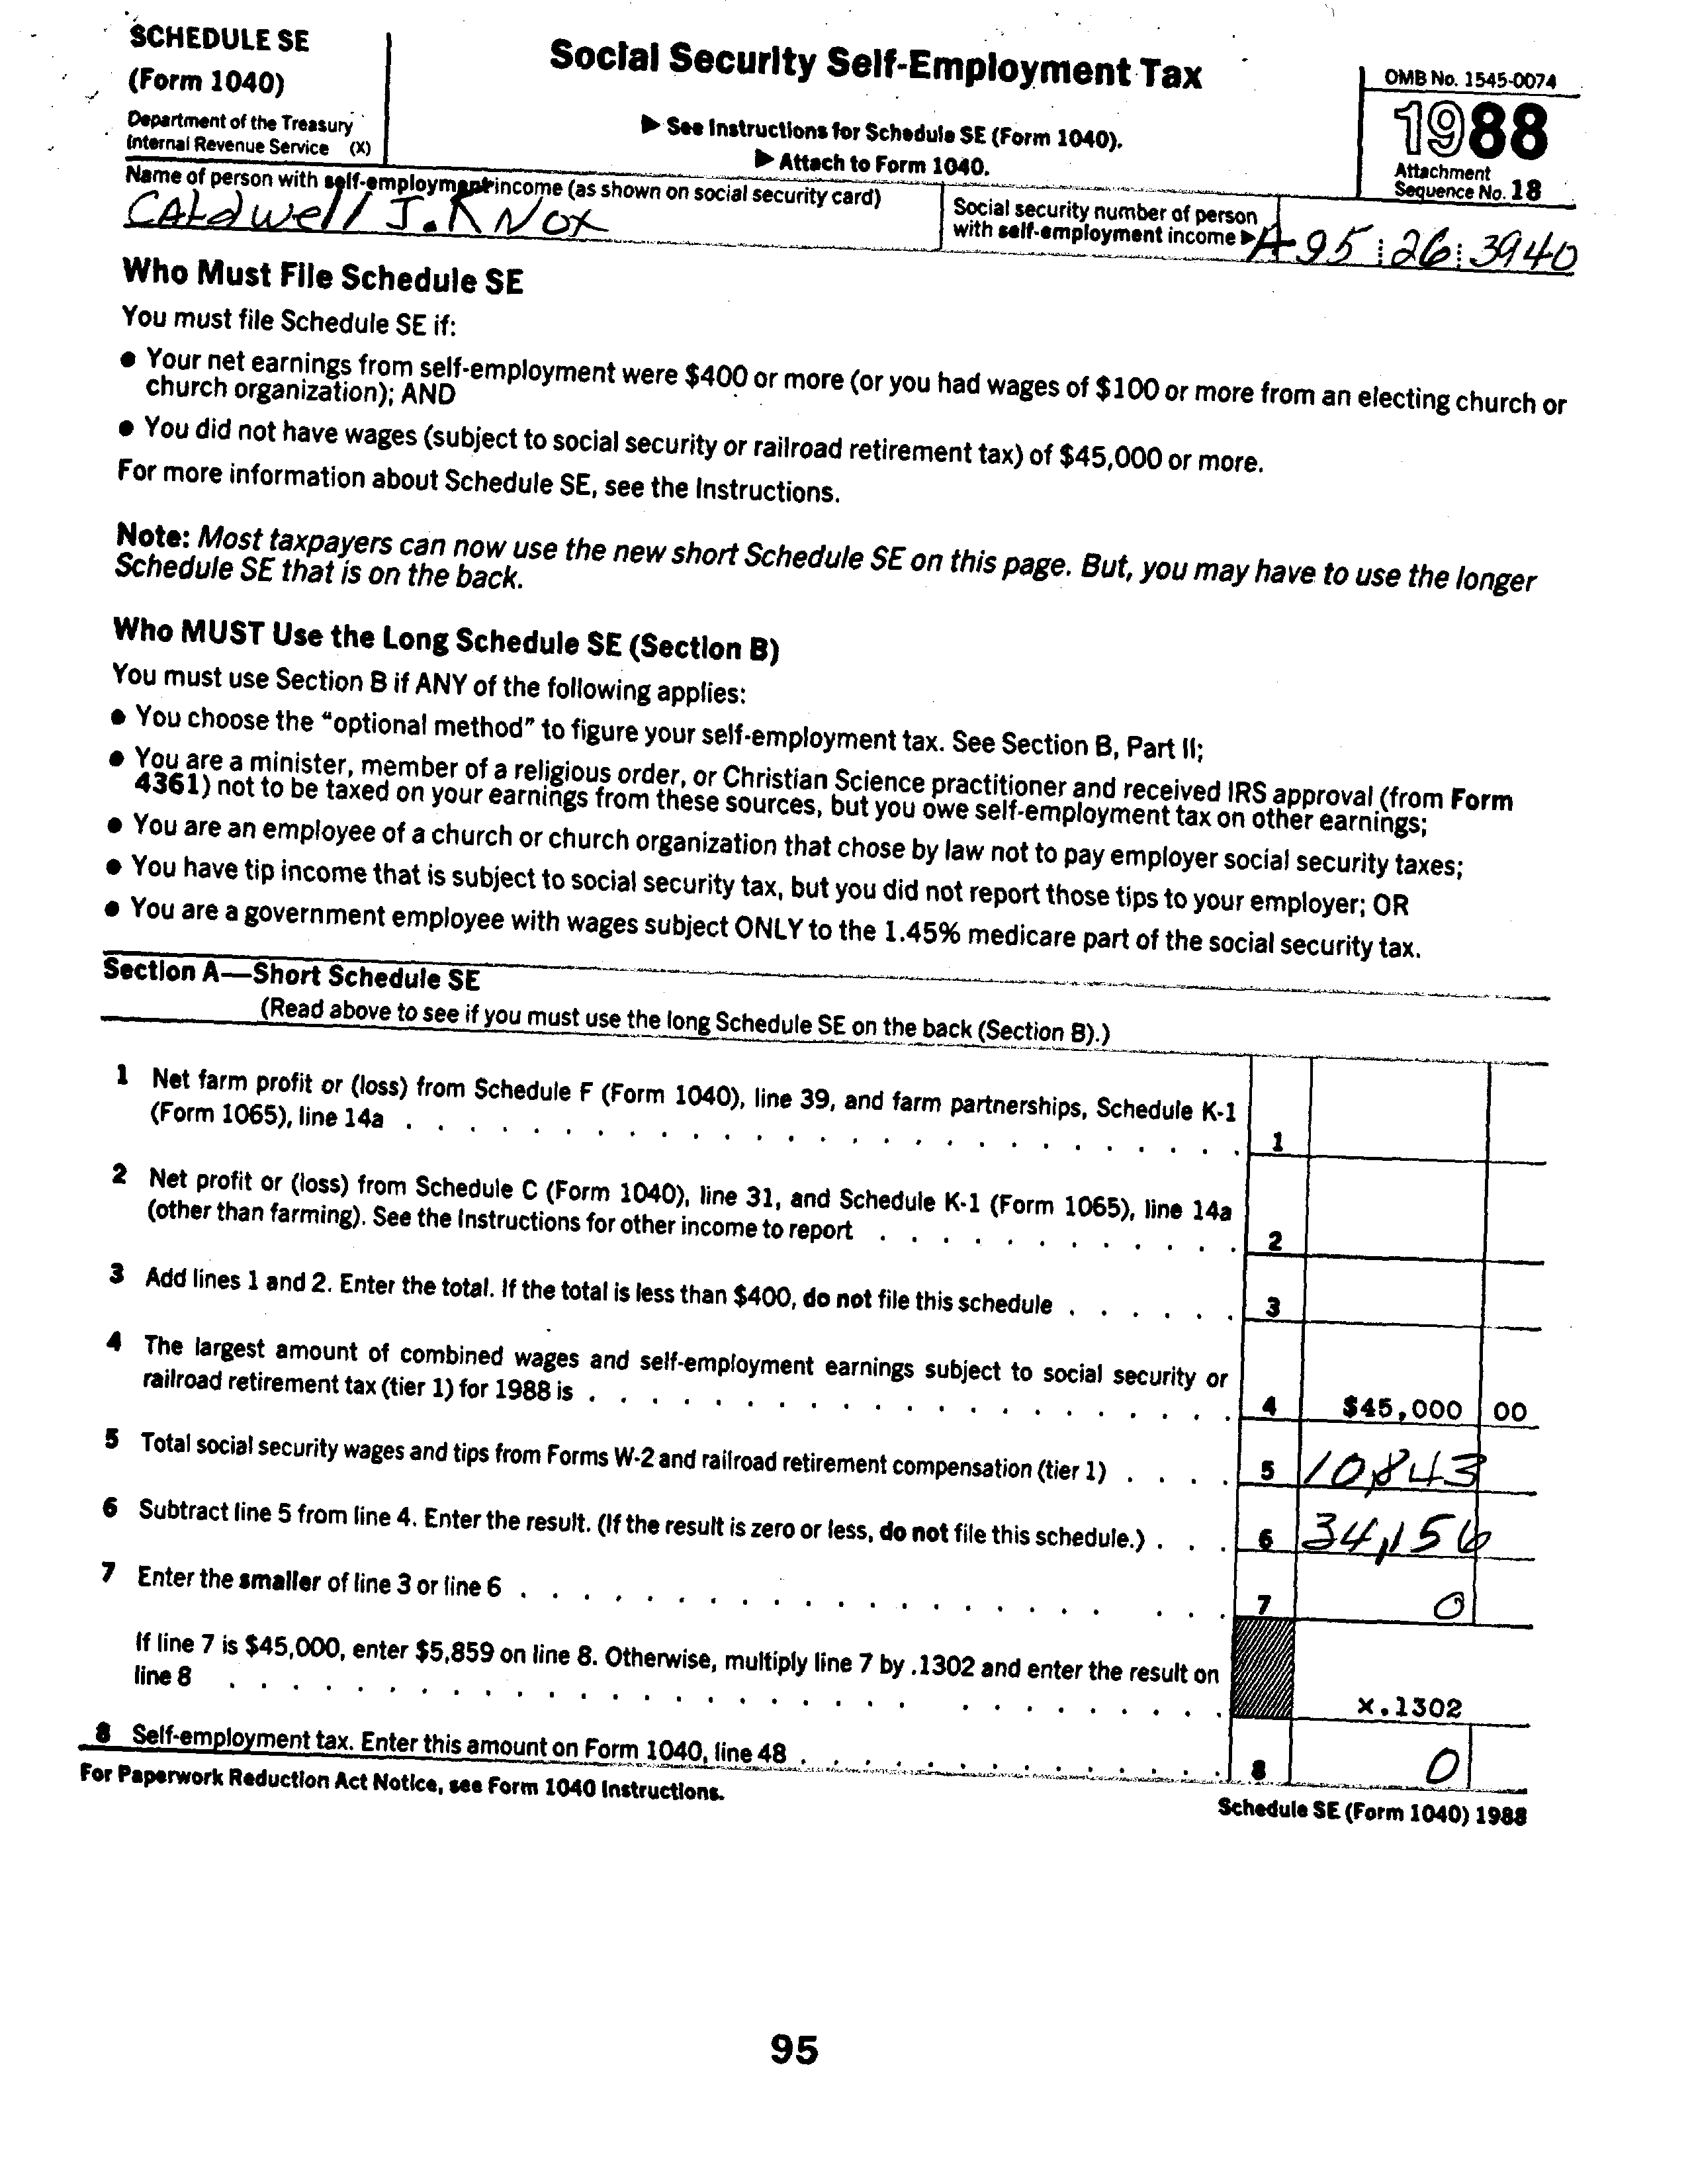 SCHEDULE SE
(Form 1040)
Department of the Treasury
Internal Revenue Service (X)
Social Security Self-Employment Tax
▶ See Instructions for Schedule SE (Form 1040).
▶ Attach to Form 1040.
OMB No. 1545-0074
1988
Attachment
Sequence No. 18
Name of person with self-employment income (as shown on social security card)
CAldwell J. KNox
Social security number of person
with self-employment income ▶
A95 26 3940
Who Must File Schedule SE
You must file Schedule SE if:
● Your net earnings from self-employment were $400 or more (or you had wages of $100 or more from an electing church or
church organization); AND
● You did not have wages (subject to social security or railroad retirement tax) of $45,000 or more.
For more information about Schedule SE, see the Instructions.
Note: Most taxpayers can now use the new short Schedule SE on this page. But, you may have to use the longer
Schedule SE that is on the back.
Who MUST Use the Long Schedule SE (Section B)
You must use Section B if ANY of the following applies:
● You choose the “optional method” to figure your self-employment tax. See Section B, Part II;
● You are a minister, member of a religious order, or Christian Science practitioner and received IRS approval (from Form
4361) not to be taxed on your earnings from these sources, but you owe self-employment tax on other earnings;
● You are an employee of a church or church organization that chose by law not to pay employer social security taxes;
● You have tip income that is subject to social security tax, but you did not report those tips to your employer; OR
● You are a government employee with wages subject ONLY to the 1.45% medicare part of the social security tax.
Section A—Short Schedule SE
(Read above to see if you must use the long Schedule SE on the back (Section B).)
1 Net farm profit or (loss) from Schedule F (Form 1040), line 39, and farm partnerships, Schedule K-1
(Form 1065), line 14a . . . . . . . . . . . . . . . . . . . . . . . . . . 1
2 Net profit or (loss) from Schedule C (Form 1040), line 31, and Schedule K-1 (Form 1065), line 14a
(other than farming). See the Instructions for other income to report . . . . . . . . . . . . 2
3 Add lines 1 and 2. Enter the total. If the total is less than $400, do not file this schedule . . . . . . 3
4 The largest amount of combined wages and self-employment earnings subject to social security or
railroad retirement tax (tier 1) for 1988 is . . . . . . . . . . . . . . . . . . . . . 4 $45,000 00
5 Total social security wages and tips from Forms W-2 and railroad retirement compensation (tier 1) . . . . 5 10,843
6 Subtract line 5 from line 4. Enter the result. (If the result is zero or less, do not file this schedule.) . . . 6 34,156
7 Enter the smaller of line 3 or line 6 . . . . . . . . . . . . . . . . . . . . . . 7 0
If line 7 is $45,000, enter $5,859 on line 8. Otherwise, multiply line 7 by .1302 and enter the result on
line 8 . . . . . . . . . . . . . . . . . . . . . . . . . . . . . . . x.1302
8 Self-employment tax. Enter this amount on Form 1040, line 48 . . . . . . . . . . . . . . 8 0
For Paperwork Reduction Act Notice, see Form 1040 Instructions.
Schedule SE (Form 1040) 1988
95